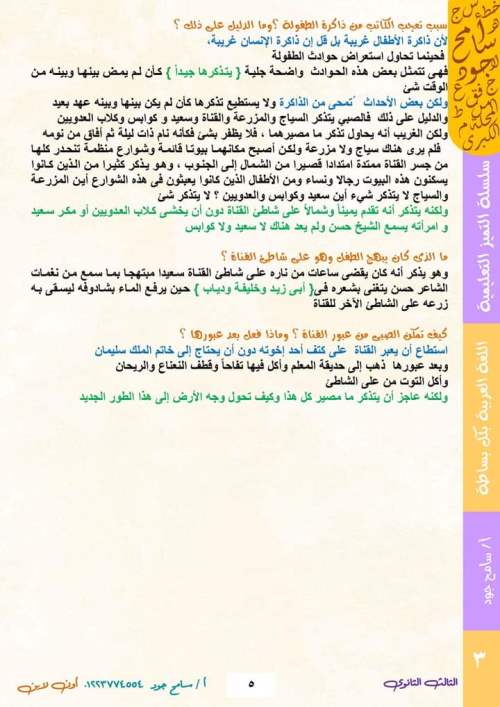 سبب تعجب الكاتب من ذاكرة الطفولة ؟وما الدليل على ذلك ؟
لأن ذاكرة الأطفال غريبة بل قل إن ذاكرة الإنسان غريبة،
فحينما تحاول استعراض حوادث الطفولة
فهى تتمثل بعض هذه الحوادث واضحة جلية { يتذكرها جيداً } كأن لم يمض بينها وبينه من
الوقت شئ
ولكن بعض الأحداث ُتمحى من الذاكرة ولا يستطيع تذكرها كأن لم يكن بينها وبينه عهد بعيد
والدليل على ذلك فالصبي يتذكر السياج والمزرعة والقناة وسعيد و كوابس وكلاب العدويين
ولكن الغريب أنه يحاول تذكر ما مصيرهما ، فلا يظفر بشئ فكأنه نام ذات ليلة ثم أفاق من نومه
فلم يرى هناك سياج ولا مزرعة ولكن أصبح مكانهما بيوتا قائمة وشوارع منظمة تنحدر كلها
من جسر القناة ممتدة امتدادا قصيرا من الشمال إلى الجنوب ، وهو يذكر كثيرا من الذين كانوا
يسكنون هذه البيوت رجالا ونساء ومن الأطفال الذين كانوا يعبثون فى هذه الشوارع أين المزرعة
والسياج لا يتذكر شيء أين سعيد وكوابس والعدويين ؟ لا يتذكر شئ
ولكنه يتذكر أنه تقدم يميناً وشمالاً على شاطئ القناة دون أن يخشى كلاب العدويين أو مكر سعيد
و امرأته يسمع الشيخ حسن ولم يعد هناك لا سعيد ولا كوابس
ما الذى كان يبهج الطفل وهو على شاطئ القناة ؟
وهو يذكر أنه كان يقضى ساعات من ناره على شاطئ القناة سعيدا مبتهجا بما سمع من نغمات
الشاعر حسن يتغنى بشعره فى{ أبى زيد وخليفة ودياب } حين يرفع الماء بشادوفه ليسقى به
زرعه على الشاطئ الآخر للقناة
كيف تمكن الصبي من عبور القناة ؟ وماذا فعل بعد عبورها ؟
استطاع أن يعبر القناة على كتف أحد إخوته دون أن يحتاج إلى خاتم الملك سليمان
وبعد عبورها ذهب إلى حديقة المعلم وأكل فيها تفاحاً وقطف النعناع والريحان
وأكل التوت من على الشاطئ
ولكنه عاجز أن يتذكر ما مصير كل هذا وكيف تحول وجه الأرض إلى هذا الطور الجديد
سامح
جودة
سلسلة التميز التعليمية
اللغة العربية بكل بساطة
أ/ سامح جود
٣
الثالث الثانوى
٥
أ/ سامح جود ٠١٢٢٣٧٧٤٥٥٤ أون لاين